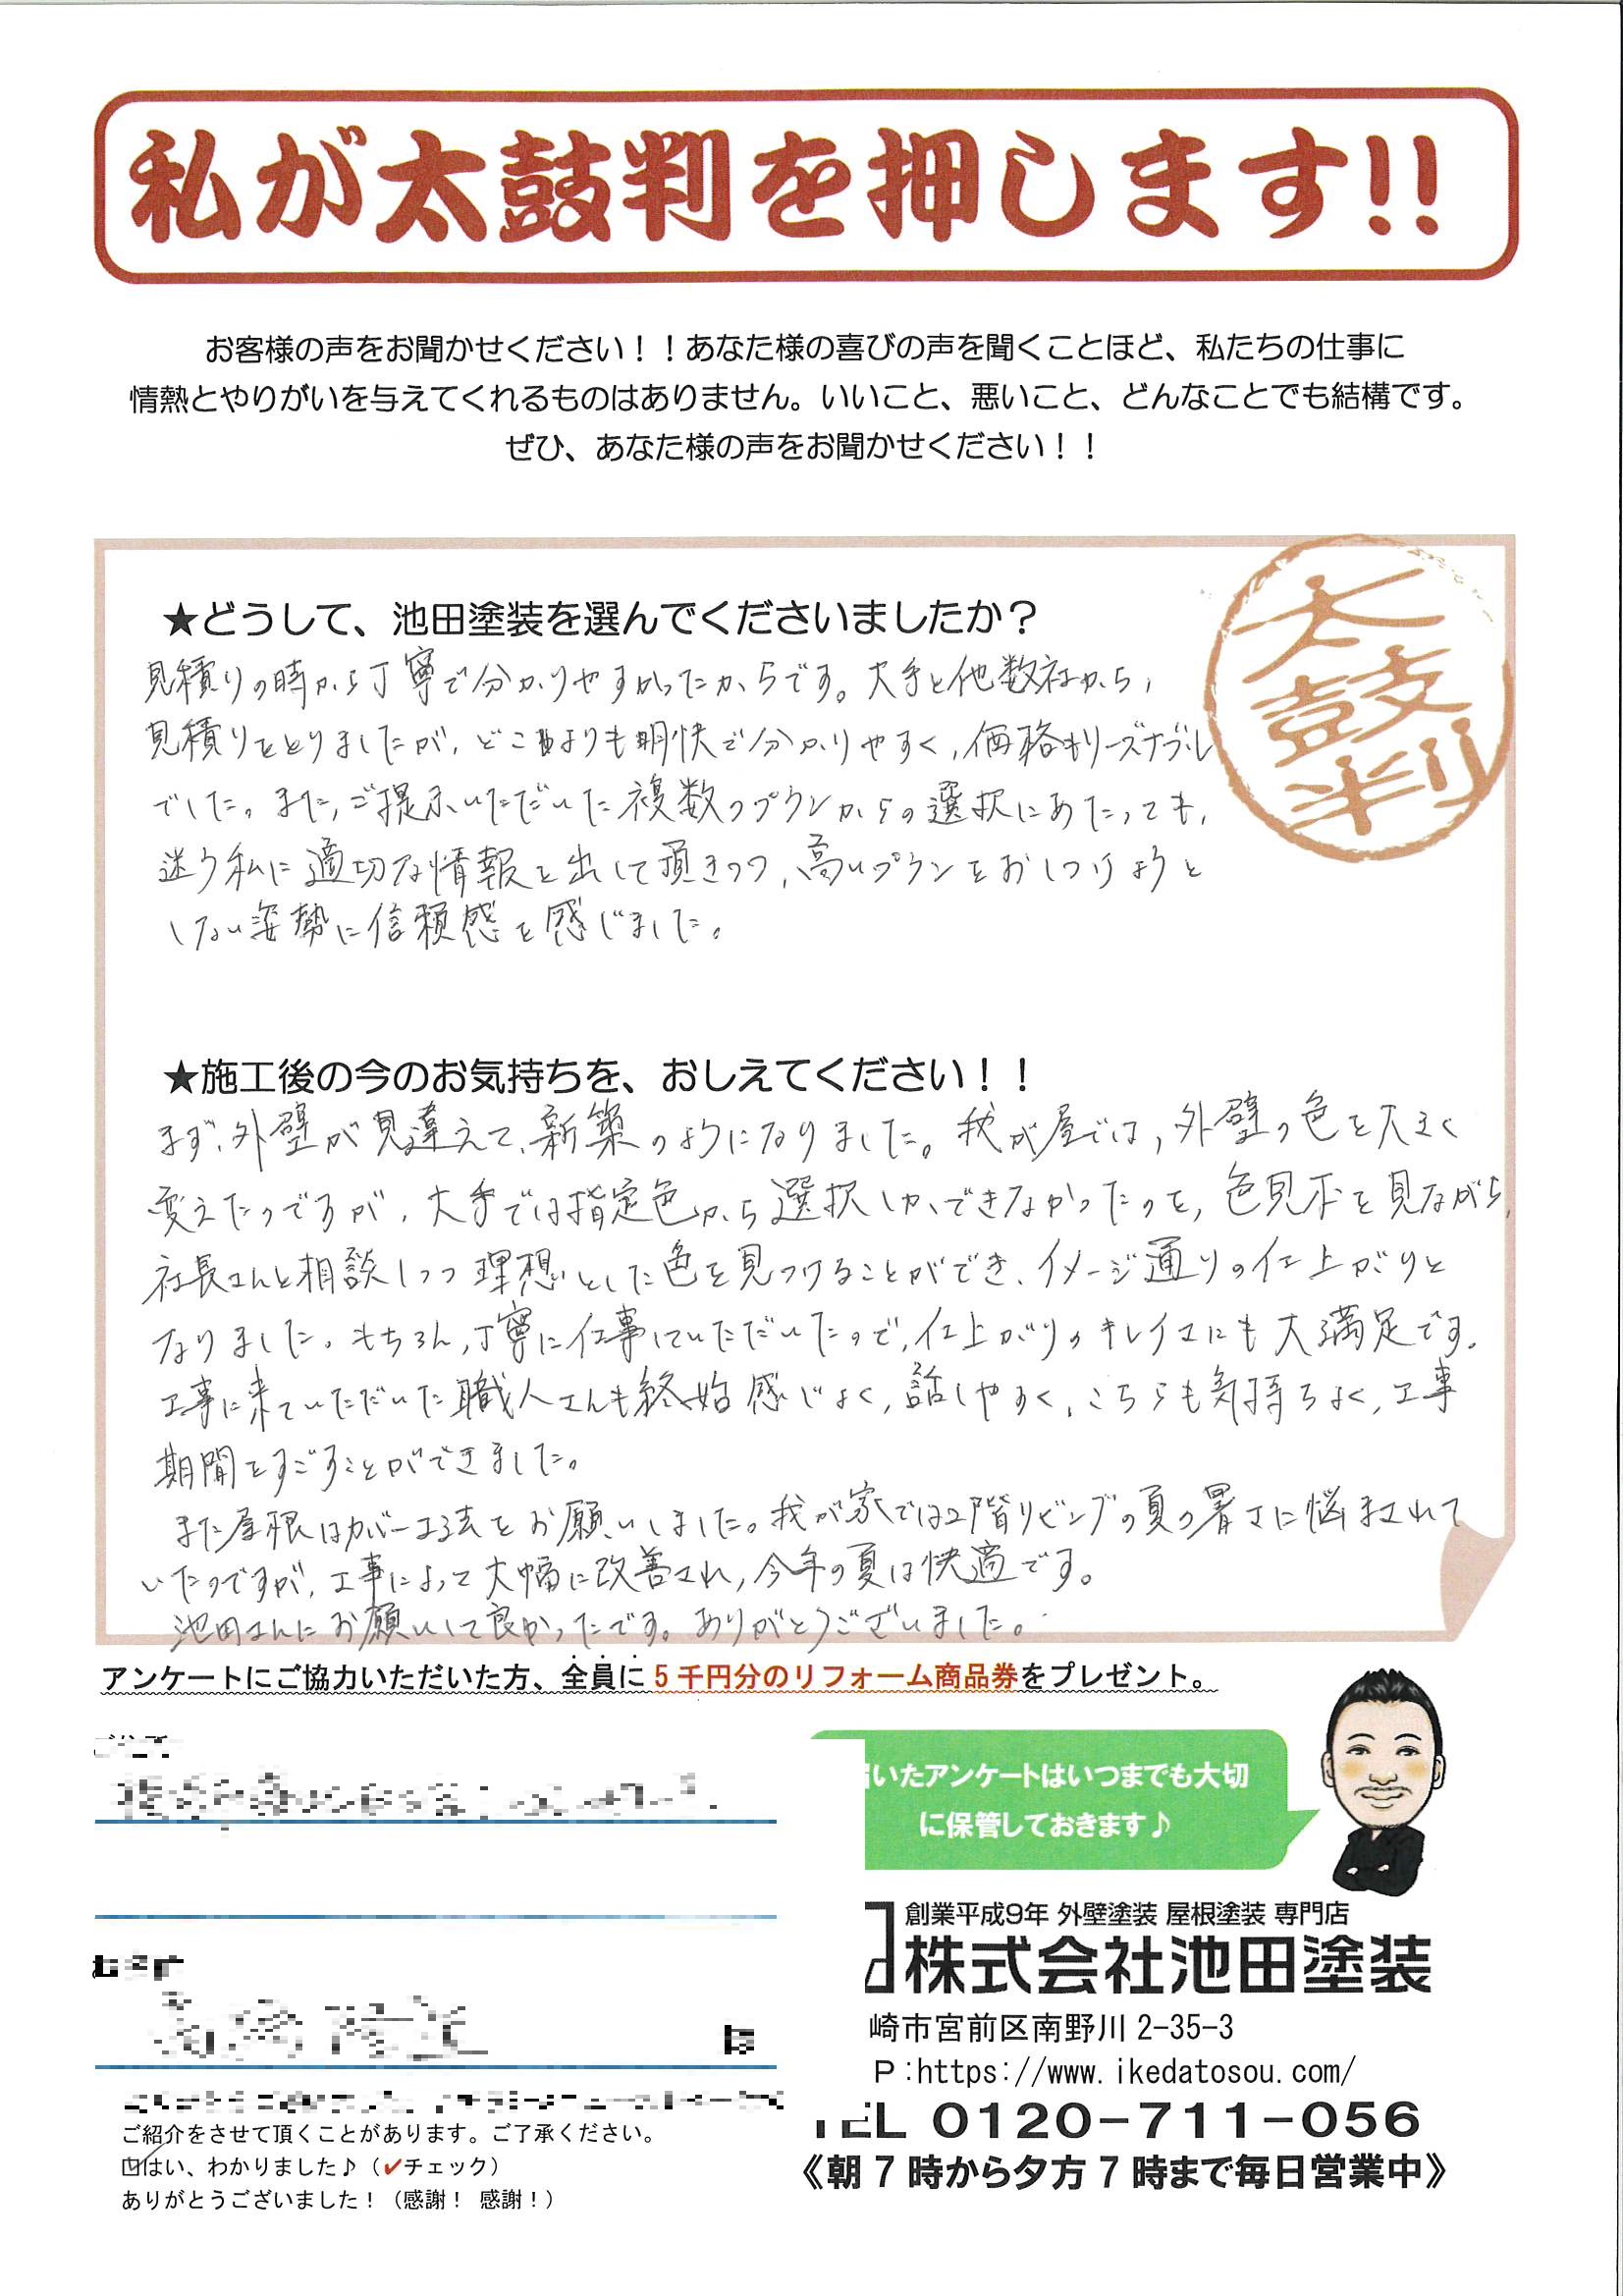 私が太鼓判を押します!!
お客様の声をお聞かせください！！あなた様の喜びの声を聞くことほど、私たちの仕事に
情熱とやりがいを与えてくれるものはありません。いいこと、悪いこと、どんなことでも結構です。
ぜひ、あなた様の声をお聞かせください！！
太鼓判
★どうして、池田塗装を選んでくださいましたか？
見積りの時から丁寧で分かりやすかったからです。大手と他数社から,
見積りをとりましたが、どこよりも明快で分かりやすく,価格もリーズナブル
でした。また,ご提示いただいた複数のプランからの選択にあたっても,
迷う私に適切な情報を出して頂きつつ、高いプランをおしつけようと
しない姿勢に信頼感を感じました。
★施工後の今のお気持ちを、おしえてください！！
まず、外壁が見違えて、新築のようになりました。我が屋では,外壁の色を大きく
変えたのですが、大手では指定色から選択しかできなかったのを,色見本を見ながら,
社長さんと相談しつつ理想とした色を見つけることができ、イメージ通りの仕上がりと
なりました。もちろん,丁寧に仕事していただいたので,仕上がりのキレイさにも大満足です。
工事に来ていただいた職人さんも終始感じよく,話しやすく、こちらも気持ちよく,工事
期間をすごすことができました。
また屋根はカバー工法をお願いしました。我が家では2階リビングの夏の暑さに悩まされて
いたのですが,工事によって大幅に改善され,今年の夏は快適です。
池田さんにお願いして良かったです。ありがとうございました。
アンケートにご協力いただいた方、全員に5千円分のリフォーム商品券をプレゼント。
いたアンケートはいつまでも大切
に保管しておきます♪
創業平成9年 外壁塗装 屋根塗装 専門店
株式会社池田塗装
崎市宮前区南野川2-35-3
P:https://www.ikedatosou.com/
TEL 0120-711-056
《朝7時から夕方7時まで毎日営業中》
ご紹介をさせて頂くことがあります。ご了承ください。
☑はい、わかりました♪（✔チェック）
ありがとうございました！（感謝！ 感謝！）